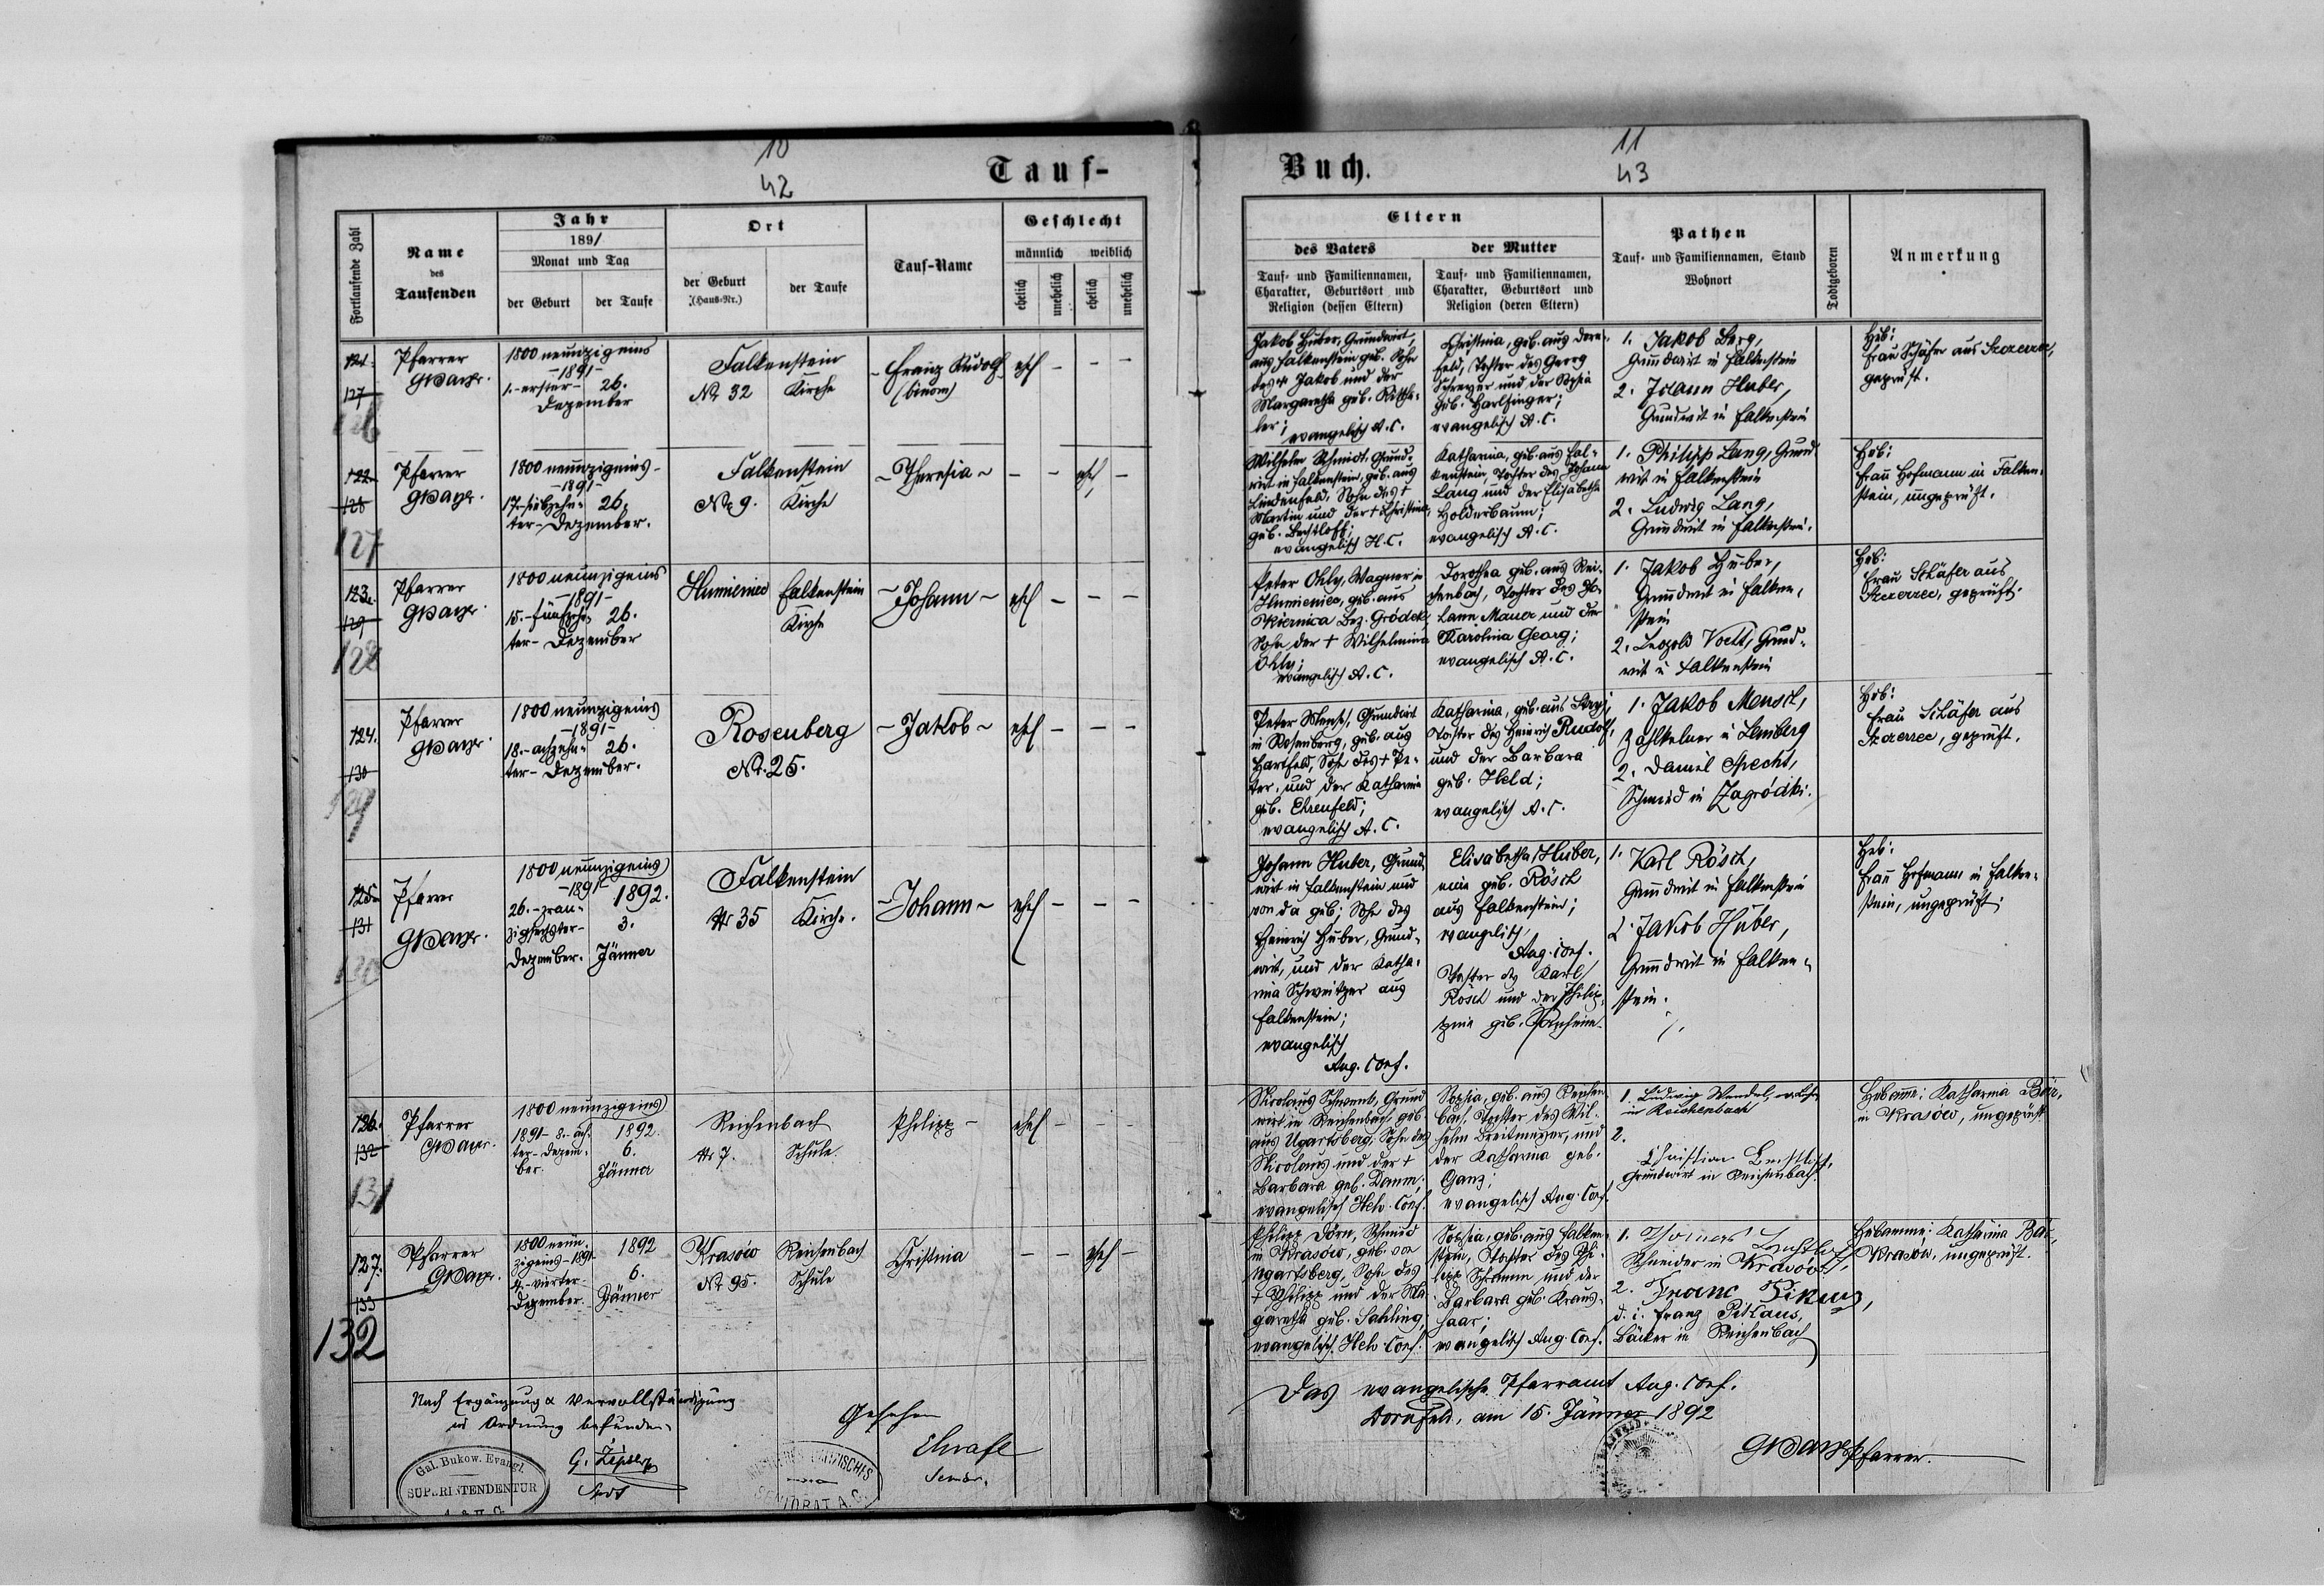 10
42
Tauf-
Fortlaufende Zahl
Name
des
Taufenden
Jahr
1891
Monat und Tag
der Geburt
der Taufe
Ort
der Geburt
(Haus-Nr.)
der Taufe
Tauf-Name
Geschlecht
männlich
weiblich
ehelich
unehelich
ehelich
unehelich
121.
127
126
Pfarrer
1800 neunzigeins
-1891-
1.-erster-
26.
Dezember
Falkenstein
No 32
Kirche
- Franz Rudolf
(binom)
ehel
-
-
-
122
128
127
Pfarrer
1800 neunzigeins-
-1891-
17.-siebzehn-
26.
ter-Dezember.
Falkenstein
No 9.
Kirche
- Theresia -
-
-
ehel
-
123.
129
128
Pfarrer
1800 neunzigeins
-1891-
15.-fünfzehn-
26.
ter-Dezember
Humieniec
Falkenstein
Kirche
- Johann -
ehel
-
-
-
124.
130
129
Pfarrer
1800 neunzigeins
-1891-
18.-achzehn-
26.
ter-Dezember.
Rosenberg
No. 25.
- Jakob -
ehel
-
-
-
125.
131
130
Pfarrer
1800 neunzigeins
-1891-
1892.
26.-zwan-
zigsechster-
3.
Dezember.
Jänner
Falkenstein
No 35
Kirche.
- Johann -
ehel
-
-
-
126.
132
131
Pfarrer
1800 neunzigeins
1891- 8.-ach-
1892.
ter-Dezem-
6.
ber.
Jänner
Reichenbach
No 7.
Schule.
Philipp -
ehel
-
-
-
127.
133
132
Pfarrer
1800 neun-
zigeins-1891-
1892
4.-vierter-
6.
Dezember.
Jänner
Krasów
Reichenbach
No 95.
Schule
Christina
-
-
ehel
-
Nach Ergänzung & Vervollständigung
in Ordnung befunden.
Gesehen
Gal. Bukow. Evangl.
SUPERINTENDENTUR
SENIORAT A.C.
11
43
Buch.
Eltern
des Vaters
der Mutter
Tauf- und Familiennamen,
Charakter, Geburtsort und
Religion (dessen Eltern)
Tauf- und Familiennamen,
Charakter, Geburtsort und
Religion (deren Eltern)
Pathen
Tauf- und Familiennamen, Stand
Wohnort
Todtgeboren
Anmerkung
Jakob Huber, Grundwirt,
aus Falkenstein geb. Sohn
des + Jakob und der
Margaretha geb.
ler;
evangelisch A.C.
Christina, geb. aus Dorn-
feld, Tochter des Georg
Schreyer und der Sofia
geb. Harlfinger;
evangelisch A.C.
1. Jakob Berg,
Grundwirt in Falkenstein
2. Johann Huber,
Grundwirt in Falkenstein
Heb:
Frau Schäfer aus Szczerzec,
geprüft.
Wilhelm Schmidt, Grund-
wirt in Falkenstein, geb. aus
Lindenfeld, Sohn des +
Martin und der + Christina
geb. Bechtloff;
evangelisch H.C.
Katharina, geb. aus Fal-
kenstein, Tochter des Johann
Lang und der Elisabetha
Holderbaum;
evangelisch A.C.
1. Philipp Lang, Grund
wirt in Falkenstein
2. Ludwig Lang,
Grundwirt in Falkenstein.
Heb:
Frau Hofmann in Falken-
stein, ungeprüft.
Peter Ohly, Wagner in
Humieniec, geb. aus
Wiernica Bez. Gródek,
Sohn der + Wilhelmina
Ohly;
evangelisch A.C.
Dorothea geb. aus Rei-
chenbach, Tochter des Jo-
hann Mauer und der
Karolina Georg;
evangelisch A.C.
1. Jakob Huber,
Grundwirt in Falken-
stein
2. Leopold Voelt, Grund-
wirt in Falkenstein
Heb:
Frau Schäfer aus
Szczerzec, geprüft.
Peter Mensch, Grundwirt
in Rosenberg, geb. aus
Hartfeld, Sohn des + Pe-
ter, und der Katharina
geb. Ehrenfeld;
evangelisch A.C.
Katharina, geb. aus Stryj,
Tochter des Heinrich Rudolf,
und der Barbara
geb. Held;
evangelisch A.C.
1. Jakob Mensch,
Zahlkelner in Lemberg
2. Daniel Specht,
Schmied in Zagródki.
Heb:
Frau Schäfer aus
Szczerzec, geprüft.
Johann Huber, Grund-
wirt in Falkenstein und
von da geb; Sohn des
Heinrich Huber, Grund-
wirt, und der Katha-
rina Schweitzer aus
Falkenstein;
evangelisch
Aug. Conf.
Elisabetha Huber,
eine geb. Rösch
aus Falkenstein;
evangelisch,
Aug. Conf.
Tochter des Karl
Rösch und der Philip-
pine geb.
1. Karl Rösch,
Grundwirt in Falkenstein
2. Jakob Huber,
Grundwirt in Falken-
stein.
Heb:
Frau Hofmann in Falken-
stein, ungeprüft.
Nicolaus Schwent, Grund
wirt in Reichenbach, geb.
aus Ugartsberg, Sohn des
Nicolaus und der +
Barbara geb. Damm;
evangelisch Helv. Conf.
Sophia, geb. aus Reichen-
bach, Tochter des Wil-
helm Breitmayer, und
der Katharina geb.
Ganz;
evangelisch Aug. Conf.
1. Ludwig Wendel,
in Reichenbach
2.
Christian Bechtloff,
Grundwirt in Reichenbach.
Hebamme: Katharina Bär,
in Krasów, ungeprüft
Philipp Dörn, Schmied
in Krasów, geb. von
Ugartsberg, Sohn des
+ Philipp und der Ma
garetha geb. Sahling,
evangelisch Helv. Conf.
Sophia, geb. aus Falken-
stein, Tochter des Phi-
lipp Schramm und der
Barbara geb. Kraus-
haar;
evangelisch Aug. Conf.
1. Thomas Bechtloff,
Schneider in Krasów,
2. Franc Pikus,
d. i. Franz
Bäcker in Reichenbach
Hebamme: Katharina Bär,
Krasów, ungeprüft.
Das evangelische Pfarramt Aug. Conf.
Dornfeld, am 15. Jänner 1892
Pfarrer.